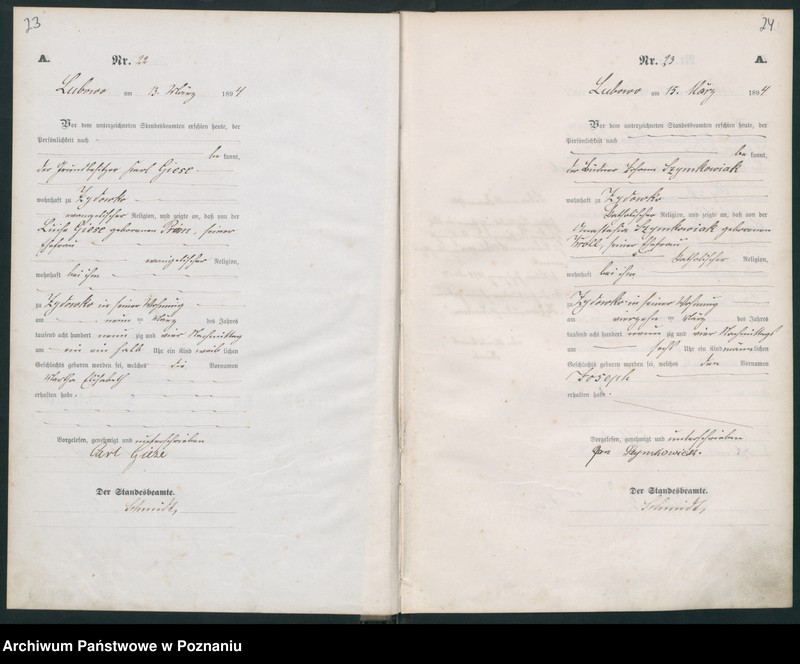 23
A.
Nr. 22
Lubowo am 13. März 1894
Vor dem unterzeichneten Standesbeamten erschien heute, der
Persönlichkeit nach
be kannt,
der Grundbesitzer Karl Giese
wohnhaft zu Zydowko
evangelischer Religion, und zeigte an, daß von der
Giese geborenen seiner
Ehefrau
evangelischer Religion,
wohnhaft bei ihm
zu Zydowko in seiner Wohnung
am neun ten März des Jahres
tausend acht hundert neun zig und vier Nachmittag
um ein ein halb Uhr ein Kind weib lichen
Geschlechts geboren worden sei, welches die Vornamen
Martha Elisabeth
erhalten habe.
Vorgelesen, genehmigt und unterschrieben
Carl Giese
Der Standesbeamte.
Schmidt,
24
Nr. 23
A.
Lubowo am 15. März 1894
Vor dem unterzeichneten Standesbeamten erschien heute, der
Persönlichkeit nach
be kannt,
der Büdner Johann Szymkowiak
wohnhaft zu Zydowko
katholischer Religion, und zeigte an, daß von der
Anastasia Szymkowiak geborenen
Kroll, seiner Ehefrau,
katholischer Religion,
wohnhaft bei ihm
zu Zydowko in seiner Wohnung
am vierzehn ten März des Jahres
tausend acht hundert neun zig und vier Nachmittags
um sechs Uhr ein Kind männlichen
Geschlechts geboren worden sei, welches den Vornamen
Joseph
erhalten habe.
Vorgelesen, genehmigt und unterschrieben
Jan Szymkowiak.
Der Standesbeamte.
Schmidt,
Archiwum Państwowe w Poznaniu